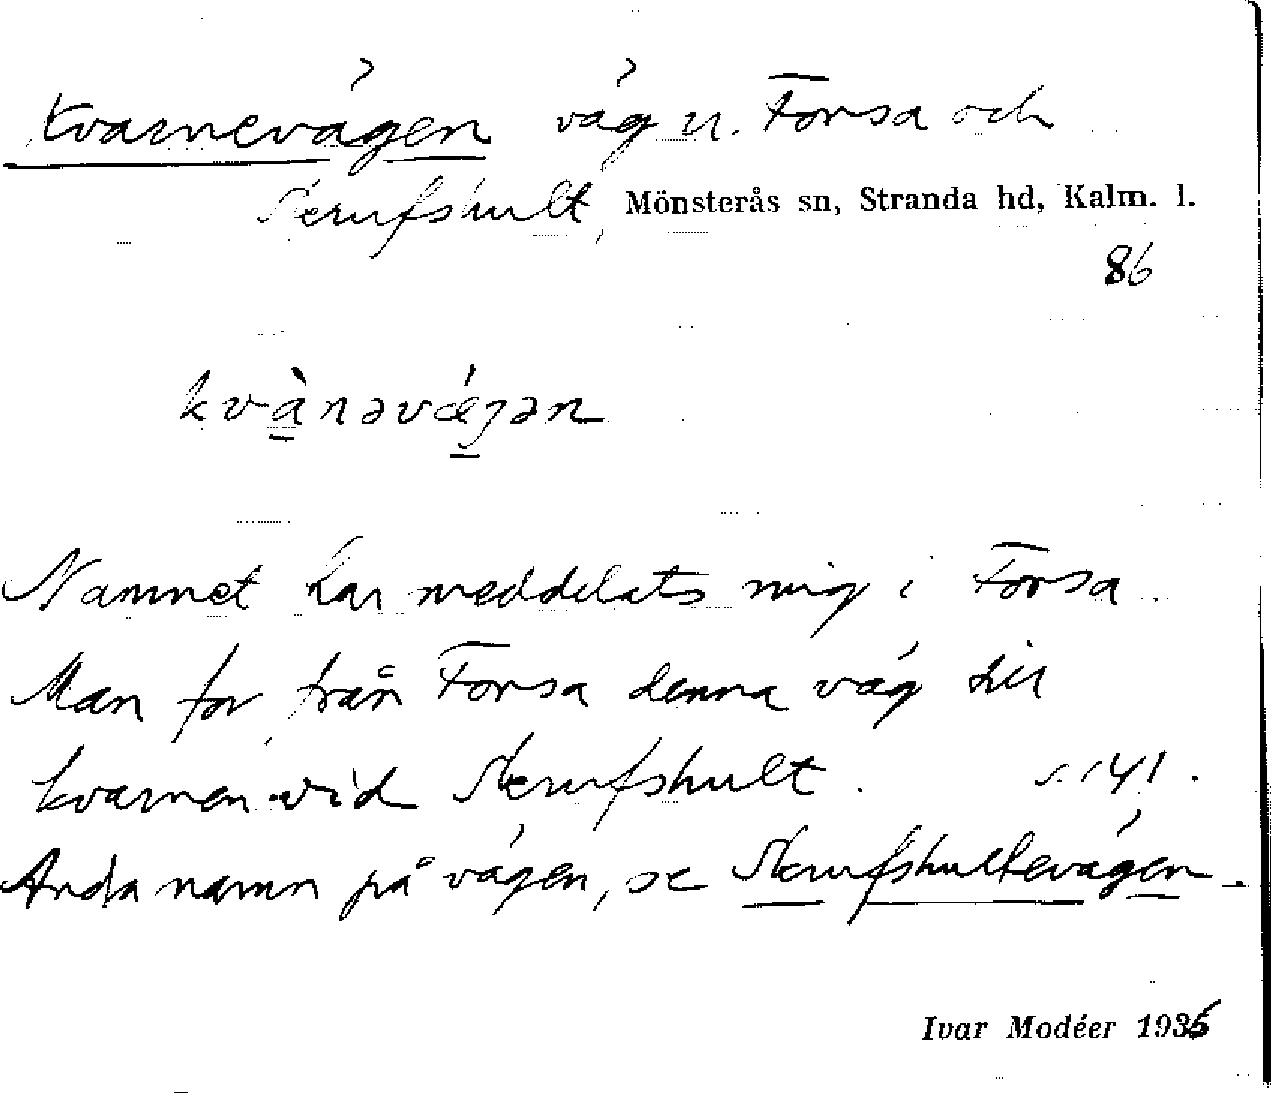 Kvarnevägen väg m. Forsa och
Skrufshult, Mönsterås sn, Stranda hd, Kalm. l.
86
kvànəvǽgən
Namnet har meddelats mig i Forsa.
Man for från Forsa denna väg till
kvarnen vid Skrufshult. s. 141.
Andra namn på vägen, se Skrufshultevägen.
Ivar Modéer 1936